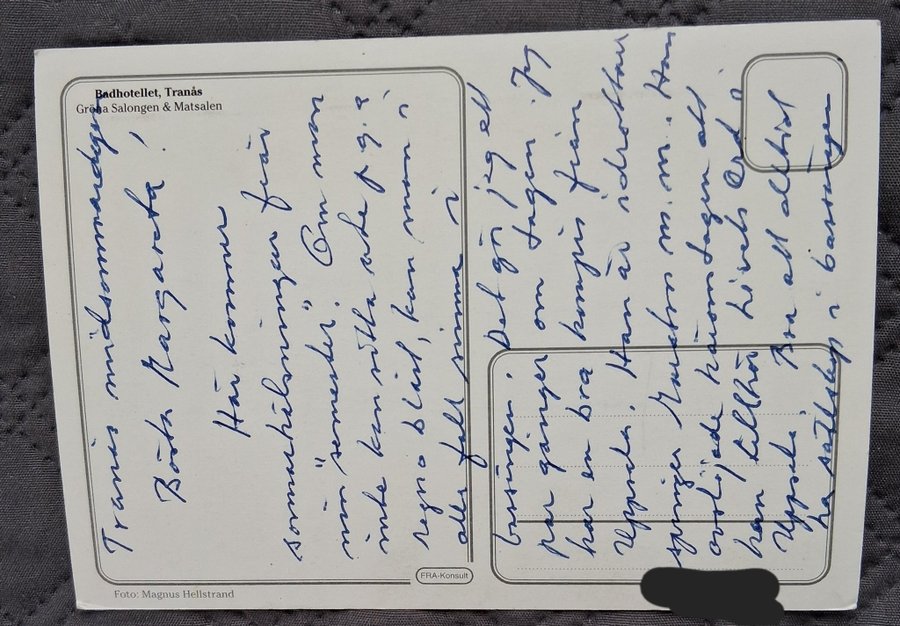 Badhotellet, Tranås
Gröna Salongen & Matsalen
Tranås midsommardagen
Bästa Margareta!
Här kommer
sommarhälsningar från
min "semester". Om man
inte kan sitta ute p g a
regn o blåst, kan man i
alla fall simma i
bassingen. Det gör jag ett
par gånger om dagen. Jag
har en bra kompis från
Uppsala. Han är idrottare
springer maraton m.m. Han
avslöjade häromdagen att
han tillhör Livets Ord i
Uppsala. Bra att alltid
ha sällskap i bassängen.
FRA-Konsult
Foto: Magnus Hellstrand